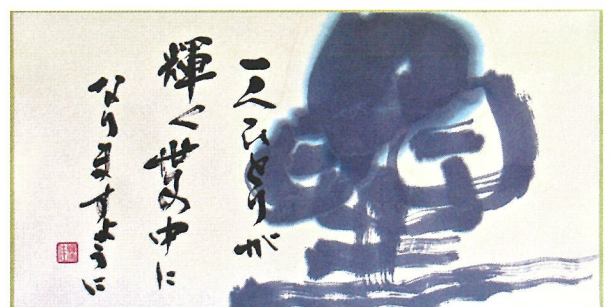 一人ひとりが
輝く世の中に
なりますように